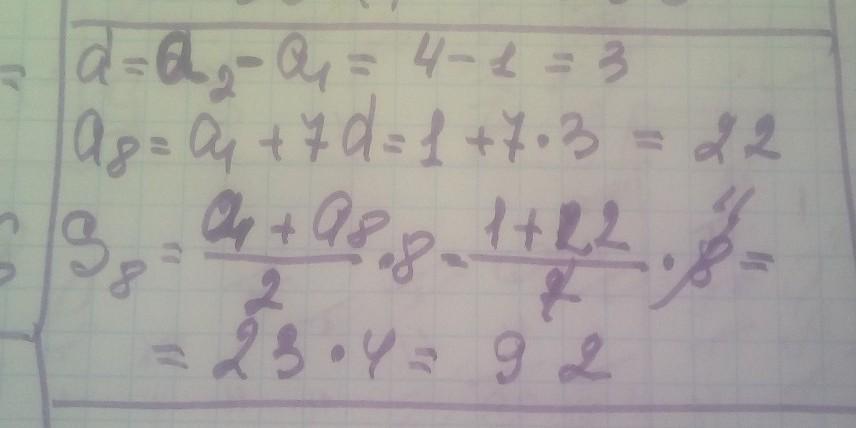 d = a₂ - a₁ = 4 - 1 = 3
a₈ = a₁ + 7d = 1 + 7·3 = 22
S₈ = (a₁ + a₈)/2 · 8 = (1 + 22)/2 · 8 =
= 23 · 4 = 92